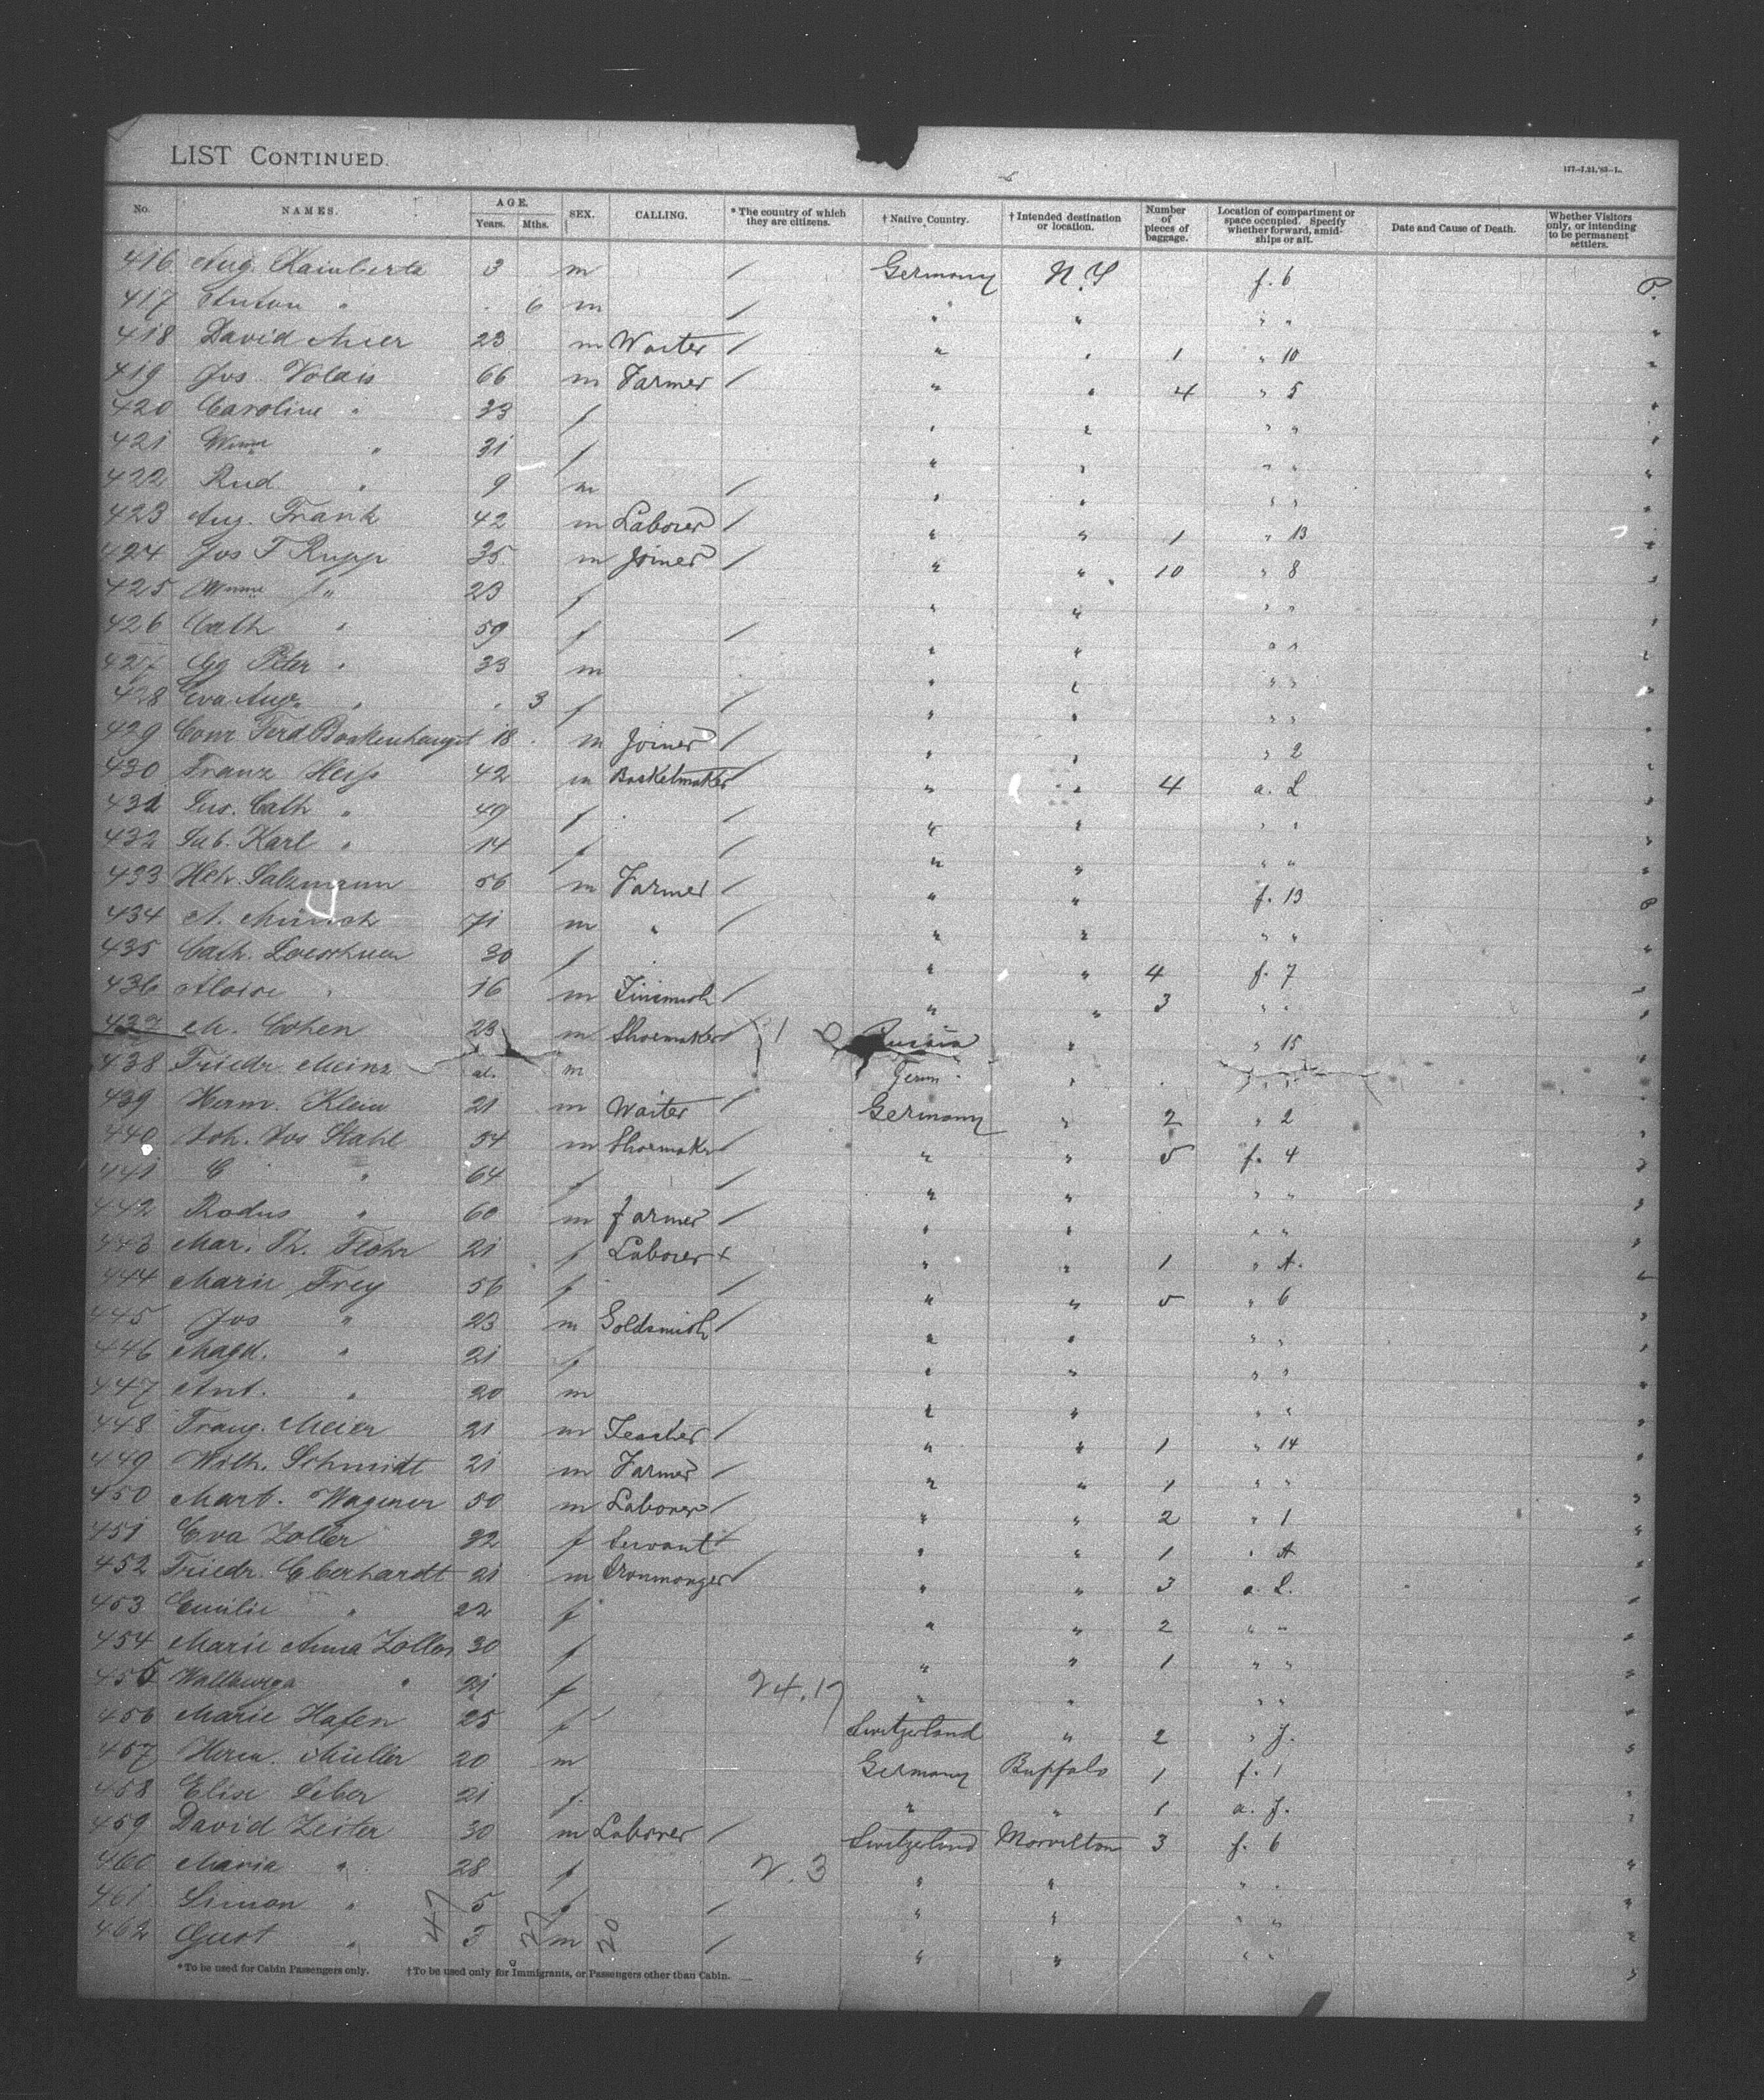 LIST CONTINUED.
177–7,21,'83–L.
No. NAMES. AGE. Years. Mths. SEX. CALLING. * The country of which they are citizens. † Native Country. † Intended destination or location. Number of pieces of baggage. Location of compartment or space occupied. Specify whether forward, amidships or aft. Date and Cause of Death. Whether Visitors only, or intending to be permanent settlers.
416 Aug. 3 m / Germany N.Y f. 6 P.
417 " 6 m / " " " "
418 David 23 m Waiter / " " 1 " 10 "
419 Jos 66 m Farmer / " " 4 " 5 "
420 Caroline " 33 f " " " " "
421 " 31 f " " " " "
422 Rud " 9 m / " " " " "
423 Aug. Frank 42 m Laborer / " " 1 " 13 "
424 Jos F Rupp 35 m Joiner / " " 10 " 8 "
425 " 23 f " " " " "
426 Cath " 59 f / " " " " "
427 Gg Peter " 33 m " " " " "
428 Eva Aug. " 3 f / " " " " "
429 Conr Ferd 18 m Joiner / " " " 2 "
430 Franz Heiss 42 m Basketmaker / " " 4 a. L "
431 Cath " 49 f / " " " " "
432 Karl " 14 f / " " " " "
433 Hch. Salzmann 56 m Farmer / " " f. 13 P
434 A. 71 m " / " " " " "
435 Cath. 30 f " " 4 f. 7 "
436 Aloise " 16 m Tinsmith / " " 3 " " "
437 M. Cohen 23 m Shoemaker / 1 Russia " " 15 "
438 Friedr Meinz ad. m Germ. " " " "
439 Herm. Klein 21 m Waiter / Germany " 2 " 2 "
440 Joh. Jos Stahl 54 m Shoemaker / " " 5 f. 4 "
441 C " 64 f / " " " " "
442 Rodus " 60 m farmer / " " " " "
443 Mar. Th. Flohr 21 f Laborer + " " 1 " A. "
444 Marie Frey 56 f / " " 5 " 6 "
445 Jos " 23 m Goldsmith / " " " " "
446 Magd. " 21 f " " " " "
447 Ant. " 20 m " " " " "
448 Meier 21 m Teacher / " " 1 " 14 "
449 Wilh. Schmidt 21 m Farmer / " " 1 " " "
450 Mart. Wagener 50 m Laborer / " " 2 " 1 "
451 Eva Zoller 22 f Servant + " " 1 " A "
452 Friedr. Eberhardt 21 m Ironmonger / " " 3 a. L. "
453 Emilie " 22 f " " 2 " " "
454 Marie Anna Zoller 30 f " " 1 " " "
455 Wallburga " 21 f 24.17 " " " " "
456 Marie Hafen 25 f Switzerland " 2 " J. "
457 Herm. Mueller 20 m Germany Buffalo 1 f. 1 "
458 Elise 21 f " " 1 a. J. "
459 David Zeiter 30 m Laborer / Switzerland Morvilton 3 f. 6 "
460 Maria " 28 f 2. 3 " " " " "
461 Simon " 5 f / " " " " "
462 Gust " 3 m / " " " " "
47 27 20
* To be used for Cabin Passengers only. † To be used only for Immigrants, or Passengers other than Cabin.